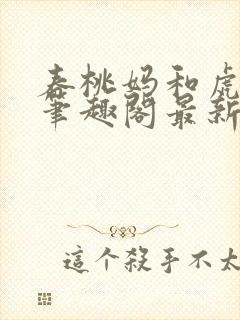 春桃妈和虎
笔趣阁最新
這个殺手不太